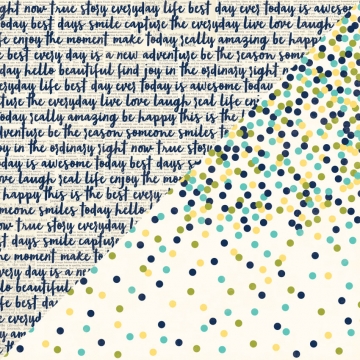 right now true story everyday life best day ever today is awesome
today best days smile capture the everyday live love laugh
life enjoy the moment make today really amazing be happy
the best every day is a new adventure be the reason some
today hello beautiful find joy in the ordinary right
everyday life best day ever today is awesome today
capture the everyday live love laugh real life en
today really amazing be happy this is the
adventure be the reason someone smiles t
joy in the ordinary right now true story
today is awesome today best days s
love laugh real life enjoy the mo
be happy this is the best every
someone smiles today hello
now true story everyday
best days smile captur
the moment make toda
every day is a ne
hello beautiful
life best da
the everyd
amo